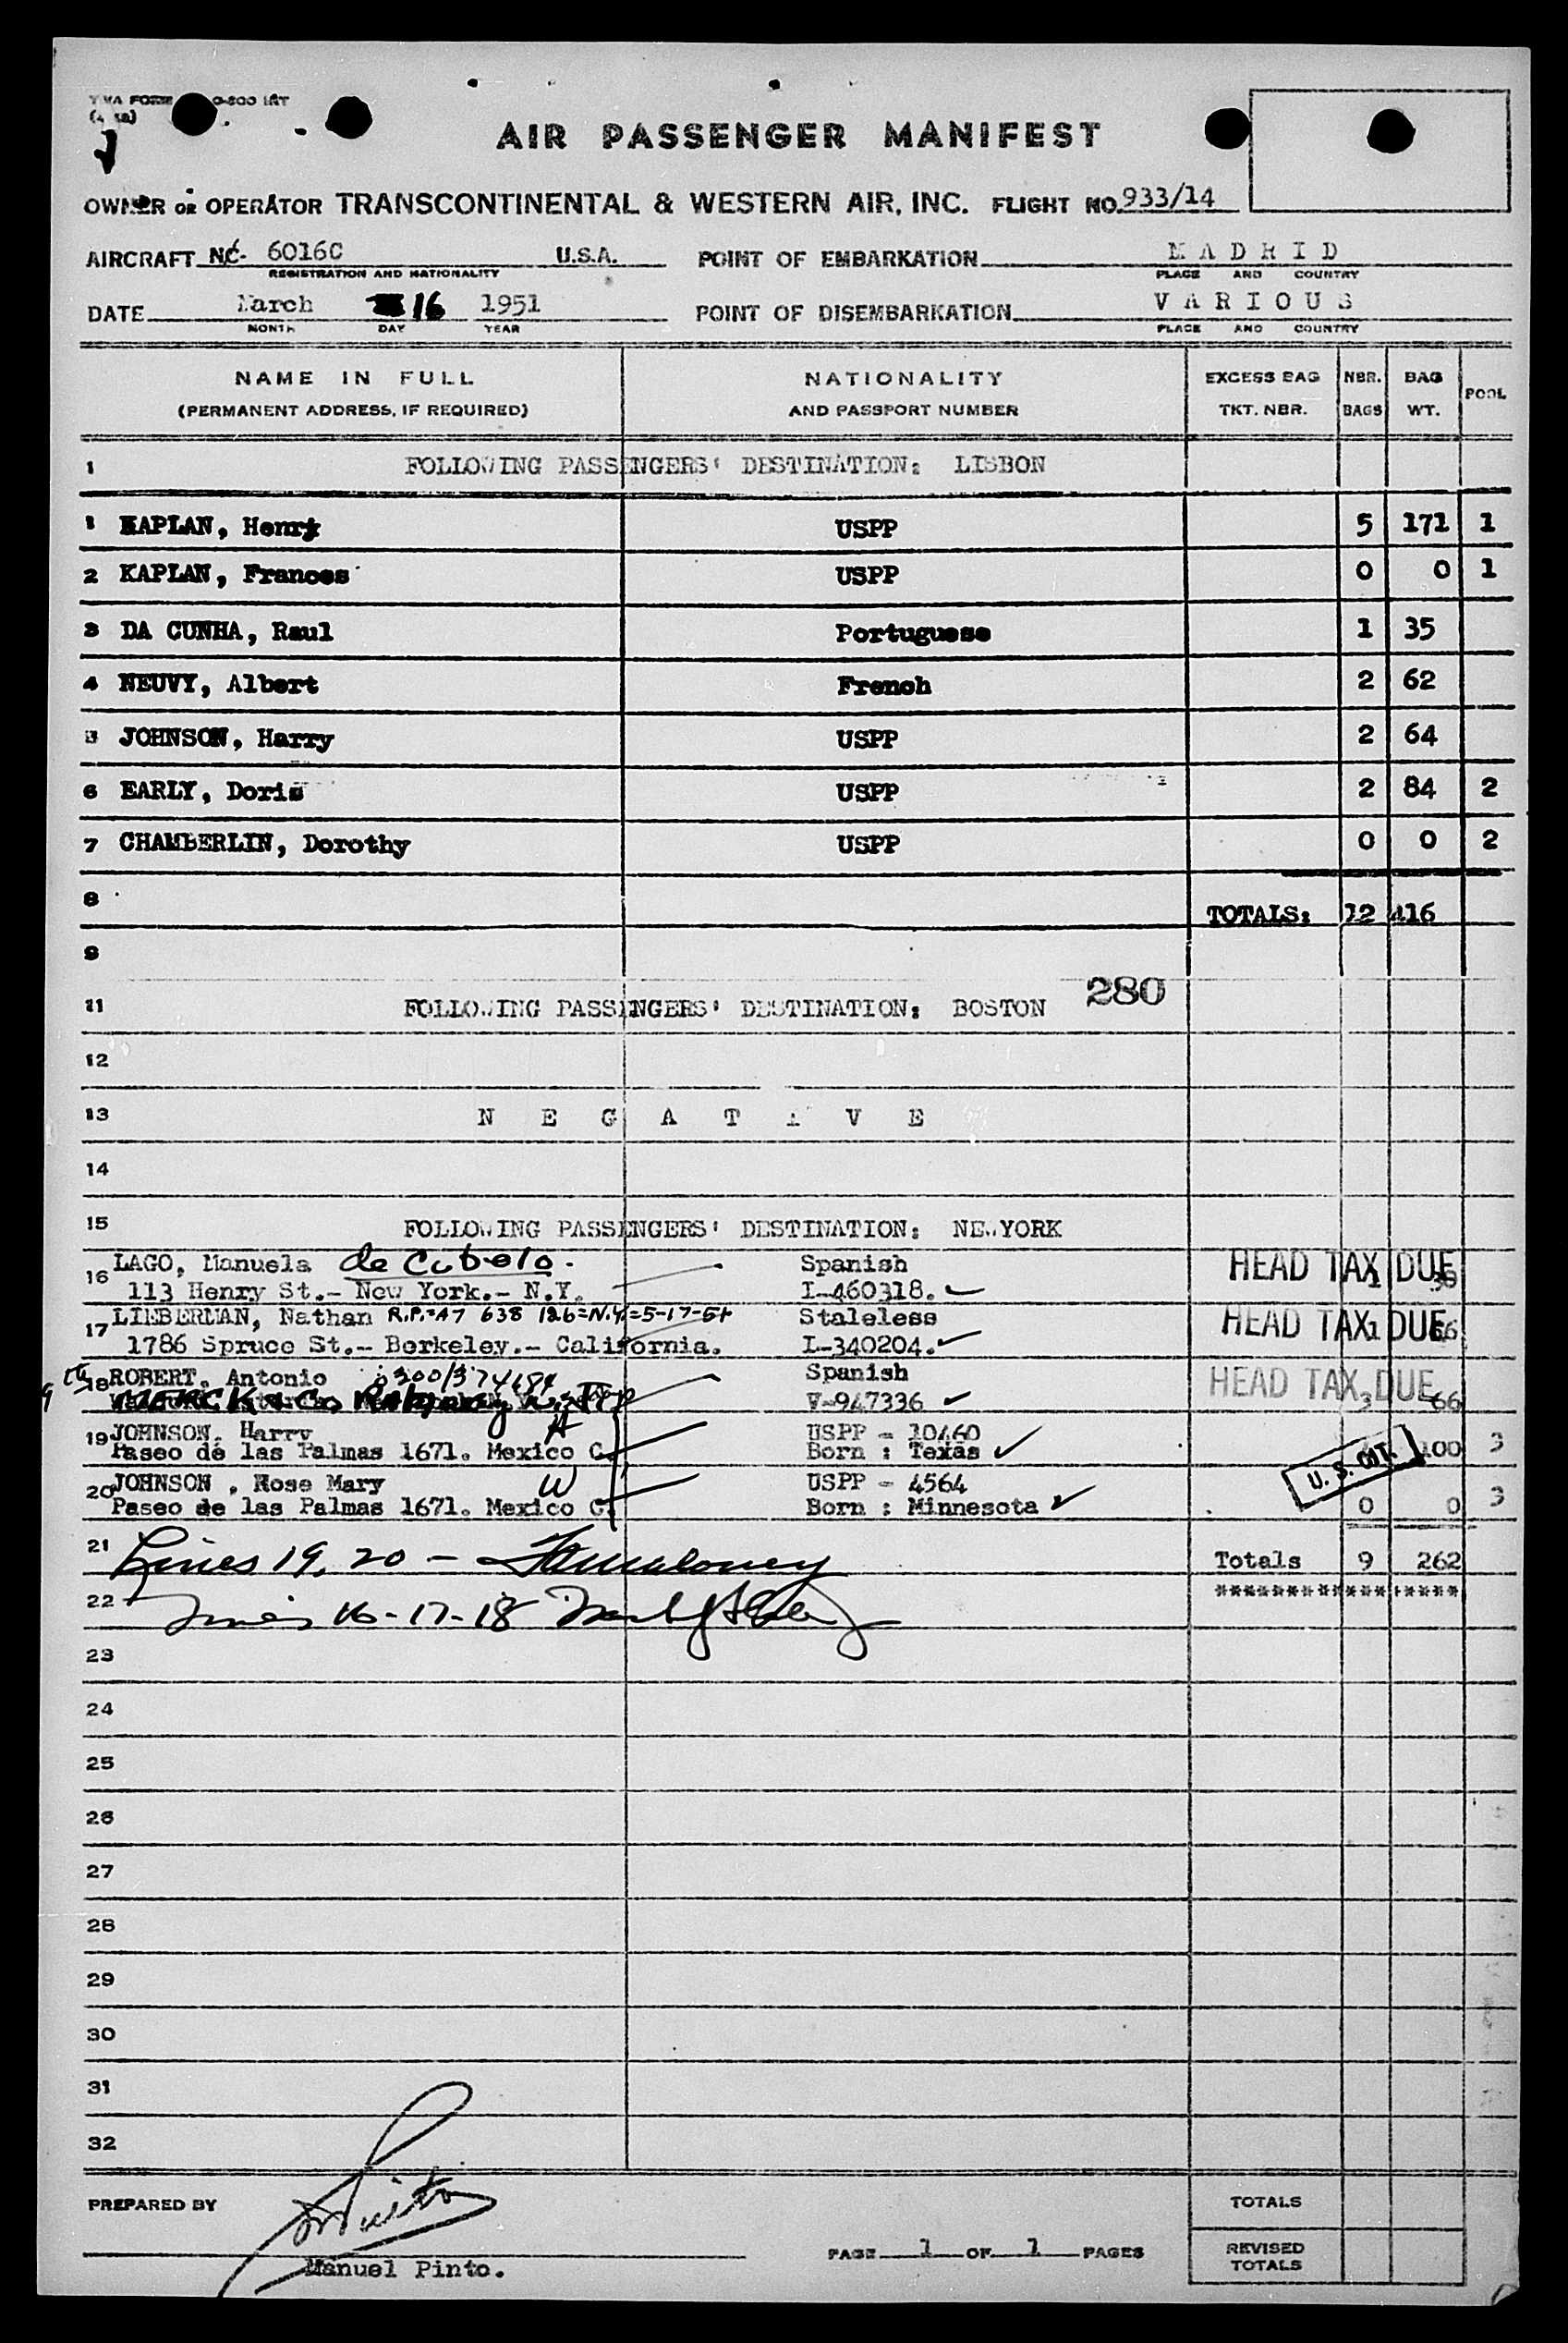 AIR PASSENGER MANIFEST
OWNER OR OPERATOR TRANSCONTINENTAL & WESTERN AIR, INC. FLIGHT NO. 933/14
AIRCRAFT NC- 6016C U.S.A. POINT OF EMBARKATION M A D R I D
REGISTRATION AND NATIONALITY PLACE AND COUNTRY
DATE March 16 1951 POINT OF DISEMBARKATION V A R I O U S
MONTH DAY YEAR PLACE AND COUNTRY
NAME IN FULL NATIONALITY EXCESS BAG NBR. BAG POOL
(PERMANENT ADDRESS, IF REQUIRED) AND PASSPORT NUMBER TKT. NBR. BAGS WT.
1 FOLLOWING PASSENGERS' DESTINATION: LISBON
1 KAPLAN, Henry USPP 5 171 1
2 KAPLAN, Frances USPP 0 0 1
3 DA CUNHA, Raul Portuguese 1 35
4 NEUVY, Albert French 2 62
5 JOHNSON, Harry USPP 2 64
6 EARLY, Doris USPP 2 84 2
7 CHAMBERLIN, Dorothy USPP 0 0 2
8 TOTALS: 12 416
9
280
11 FOLLOWING PASSENGERS' DESTINATION: BOSTON
12
13 N E G A T I V E
14
15 FOLLOWING PASSENGERS' DESTINATION: NEW YORK
16 LAGO, Manuela de Cubelo. Spanish HEAD TAX DUE
113 Henry St.- New York.- N.Y. I-460318. 1
17 LIEBERMAN, Nathan R.P.=A7 638 126=N.Y.=5-17-51 Staleless HEAD TAX DUE
1786 Spruce St.- Berkeley.- California. I-340204. 1 66
18 ROBERT, Antonio Spanish HEAD TAX DUE
MERCK & Co. Rahway N.J. V-947336 3 66
19 JOHNSON, Harry H USPP - 10460
Paseo de las Palmas 1671. Mexico C. Born : Texas 100 3
U. S. CIT.
20 JOHNSON , Rose Mary W USPP - 4564
Paseo de las Palmas 1671. Mexico C. Born : Minnesota 0 0 3
21 Lines 19, 20 - Totals 9 262
22 Lines 16-17-18 *****************
23
24
25
26
27
28
29
30
31
32
PREPARED BY TOTALS
Manuel Pinto. PAGE 1 OF 1 PAGES REVISED
TOTALS